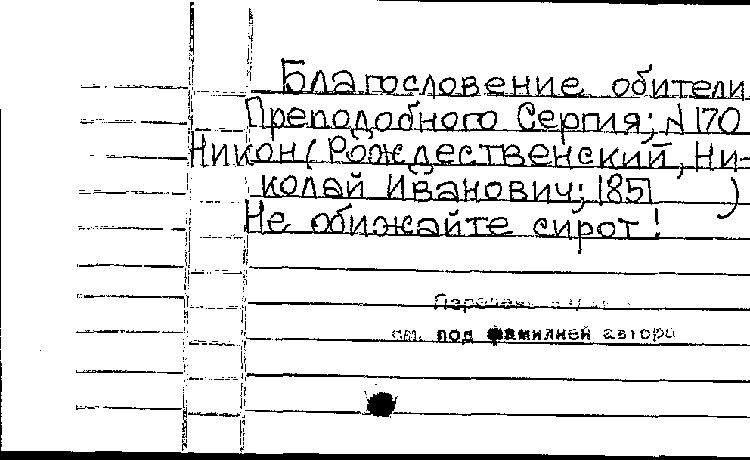 Благословение обители
Преподобного Сергия; №170
Никон (Рождественский, Ни-
колай Иванович; 1851 )
Не обижайте сирот!
см. под фамилией автора